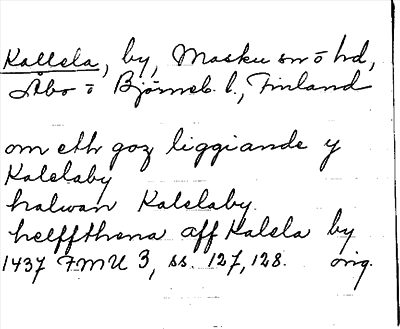 Kallela, by, Masku sn o hd,
Åbo o Björneb. l., Finland
om eth goz liggiande y
Kalelaby
halwan Kalelaby
helffthena aff Kalela by
1437 FMU 3, ss. 127, 128. orig.